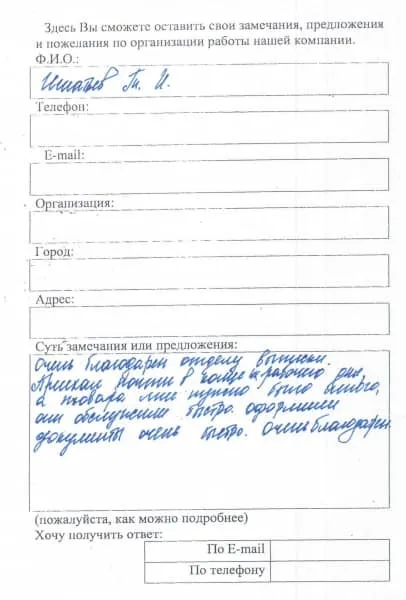 Здесь Вы сможете оставить свои замечания, предложения
и пожелания по организации работы нашей компании.
Ф.И.О.:
Игнатьев Т. И.
Телефон:
E-mail:
Организация:
Город:
Адрес:
Суть замечания или предложения:
Очень благодарен отделу выписки.
Приехал почти в конце рабочего дня,
а товара мне нужно было много,
они обслужили быстро. оформили
документы очень быстро. Очень благодарен.
(пожалуйста, как можно подробнее)
Хочу получить ответ:
По E-mail
По телефону